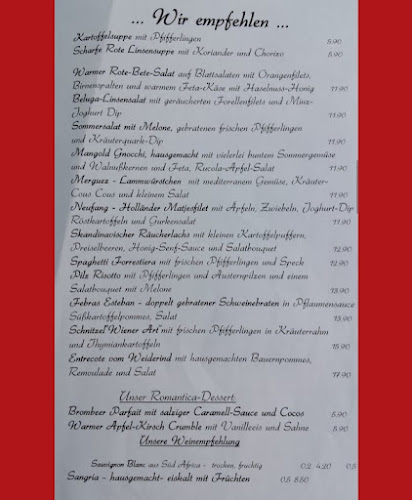 ... Wir empfehlen ...
Kartoffelsuppe mit Pfifferlingen 5.90
Scharfe Rote Linsensuppe mit Koriander und Chorizo 5.90
Warmer Rote-Bete-Salat auf Blattsalaten mit Orangenfilets,
Birnenspalten und warmem Feta-Käse mit Haselnuss-Honig 11.90
Beluga-Linsensalat mit geräucherten Forellenfilets und Minz-
Joghurt Dip 11.90
Sommersalat mit Melone, gebratenen frischen Pfifferlingen
und Kräuterquark-Dip 11.90
Mangold Gnocchi, hausgemacht mit vielerlei buntem Sommergemüse
und Walnußkernen und Feta, Rucola-Apfel-Salat 11.90
Merguez - Lammwürstchen mit mediterranem Gemüse, Kräuter-
Cous Cous und kleinem Salat 11.90
Neufang - Holländer Matjesfilet mit Apfeln, Zwiebeln, Joghurt-Dip
Röstkartoffeln und Gurkensalat 11.90
Skandinavischer Räucherlachs mit kleinen Kartoffelpuffern,
Preiselbeeren, Honig-Senf-Sauce und Salatbouquet 12.90
Spaghetti Forrestiera mit frischen Pfifferlingen und Speck 12.90
Pilz Risotto mit Pfifferlingen und Austernpilzen und einem
Salatbouquet mit Melone 13.90
Febras Esteban - doppelt gebratener Schweinebraten in Pflaumensauce
Süßkartoffelpommes, Salat 13.90
Schnitzel Wiener Art mit frischen Pfifferlingen in Kräuterrahm
und Thymiankartoffeln 15.90
Entrecote vom Weiderind mit hausgemachten Bauernpommes,
Remoulade und Salat 17.90
Unser Romantica-Dessert:
Brombeer Parfait mit salziger Caramell-Sauce und Cocos 5.90
Warmer Apfel-Kirsch Crumble mit Vanilleeis und Sahne 5.90
Unsere Weinempfehlung
Sauvignon Blanc aus Süd Africa - trocken, fruchtig 0.2 4.20 0.5
Sangria - hausgemacht- eiskalt mit Früchten 0.5 8.50